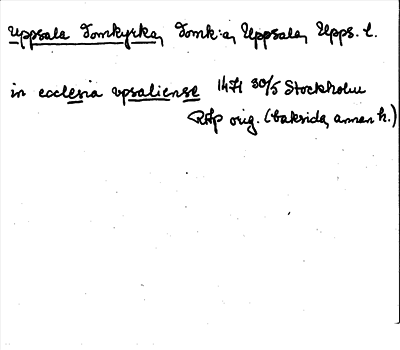 Uppsala Domkyrka, Domk:a, Uppsala, Upps. l.
in ecclesia upsaliense 1471 30/5 Stockholm
RAp orig. (baksida, annan h.)